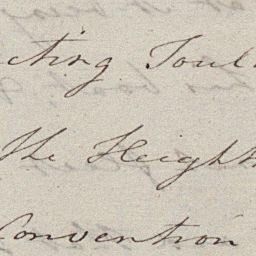 cting Toul
The Heights
Convention